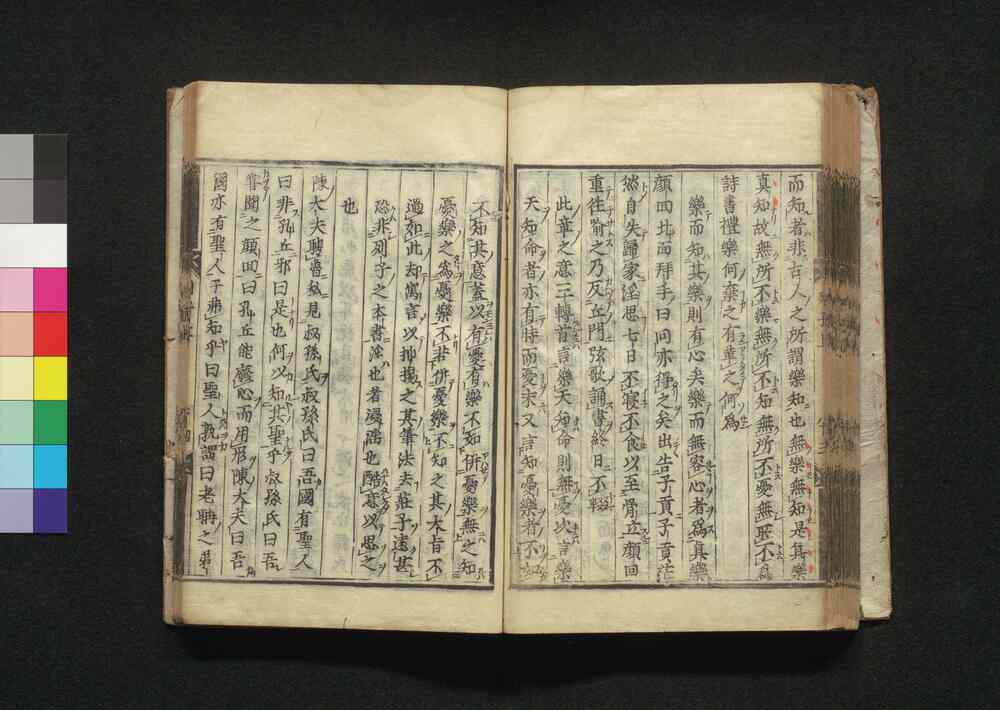 而知者非古人之所謂樂知也無樂無知是真樂
真知故無所不樂無所不知無所不憂無所不爲
詩書禮樂何棄之有革之何爲
樂而知其樂則有心矣樂而無容心者爲真樂
顏回北面拜手曰回亦得之矣出告子貢子貢茫
然自失歸家淫思七日不寢不食以至骨立顏回
重往喻之乃反丘門弦歌誦書終日不輟
此章之意三轉首言樂天知命則無憂次言樂
天知命者亦有時而憂末又言知憂樂者不如
不知其意蓋以有憂有樂不如併憂樂無之知
憂樂之爲憂樂不若併憂樂不知之其大旨不
過如此却寓言以抑揚之其筆法去莊子遠甚
恐非列子之本書淫也者浸淫也酷意以思之
也
陳大夫聘魯私見叔孫氏叔孫氏曰吾國有聖人
曰非孔丘邪曰是也何以知其聖乎叔孫氏曰吾
嘗聞之顏回曰孔丘能廢心而用形陳大夫曰吾
國亦有聖人子弗知乎曰聖人孰謂曰老聃之弟